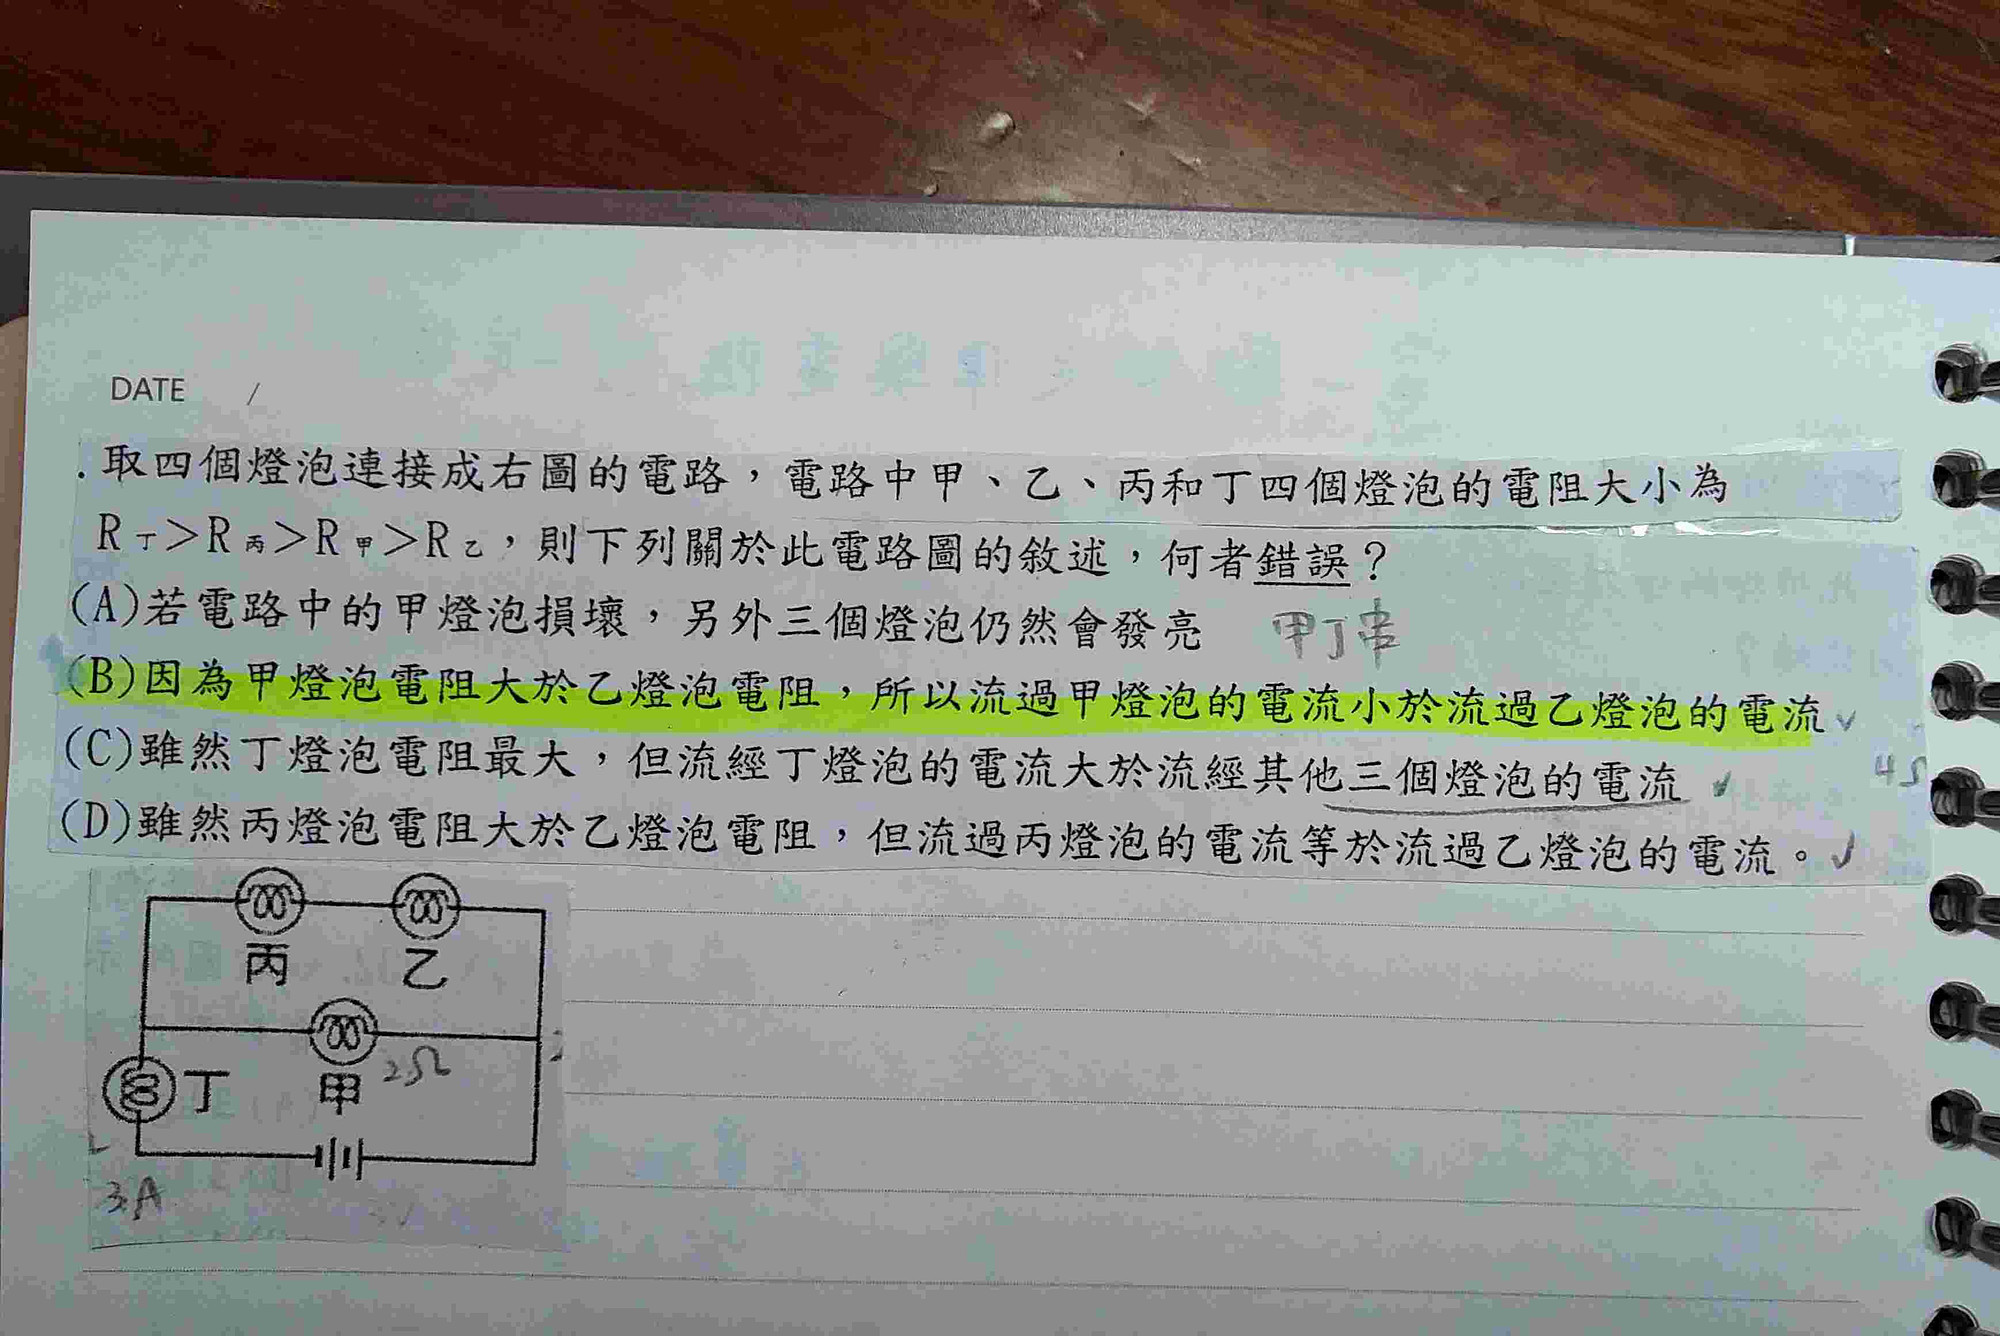 DATE /
.取四個燈泡連接成右圖的電路，電路中甲、乙、丙和丁四個燈泡的電阻大小為
R丁＞R丙＞R甲＞R乙，則下列關於此電路圖的敘述，何者錯誤？
(A)若電路中的甲燈泡損壞，另外三個燈泡仍然會發亮 甲丁串
(B)因為甲燈泡電阻大於乙燈泡電阻，所以流過甲燈泡的電流小於流過乙燈泡的電流
(C)雖然丁燈泡電阻最大，但流經丁燈泡的電流大於流經其他三個燈泡的電流
(D)雖然丙燈泡電阻大於乙燈泡電阻，但流過丙燈泡的電流等於流過乙燈泡的電流。
丙 乙
丁 甲 2Ω
3A